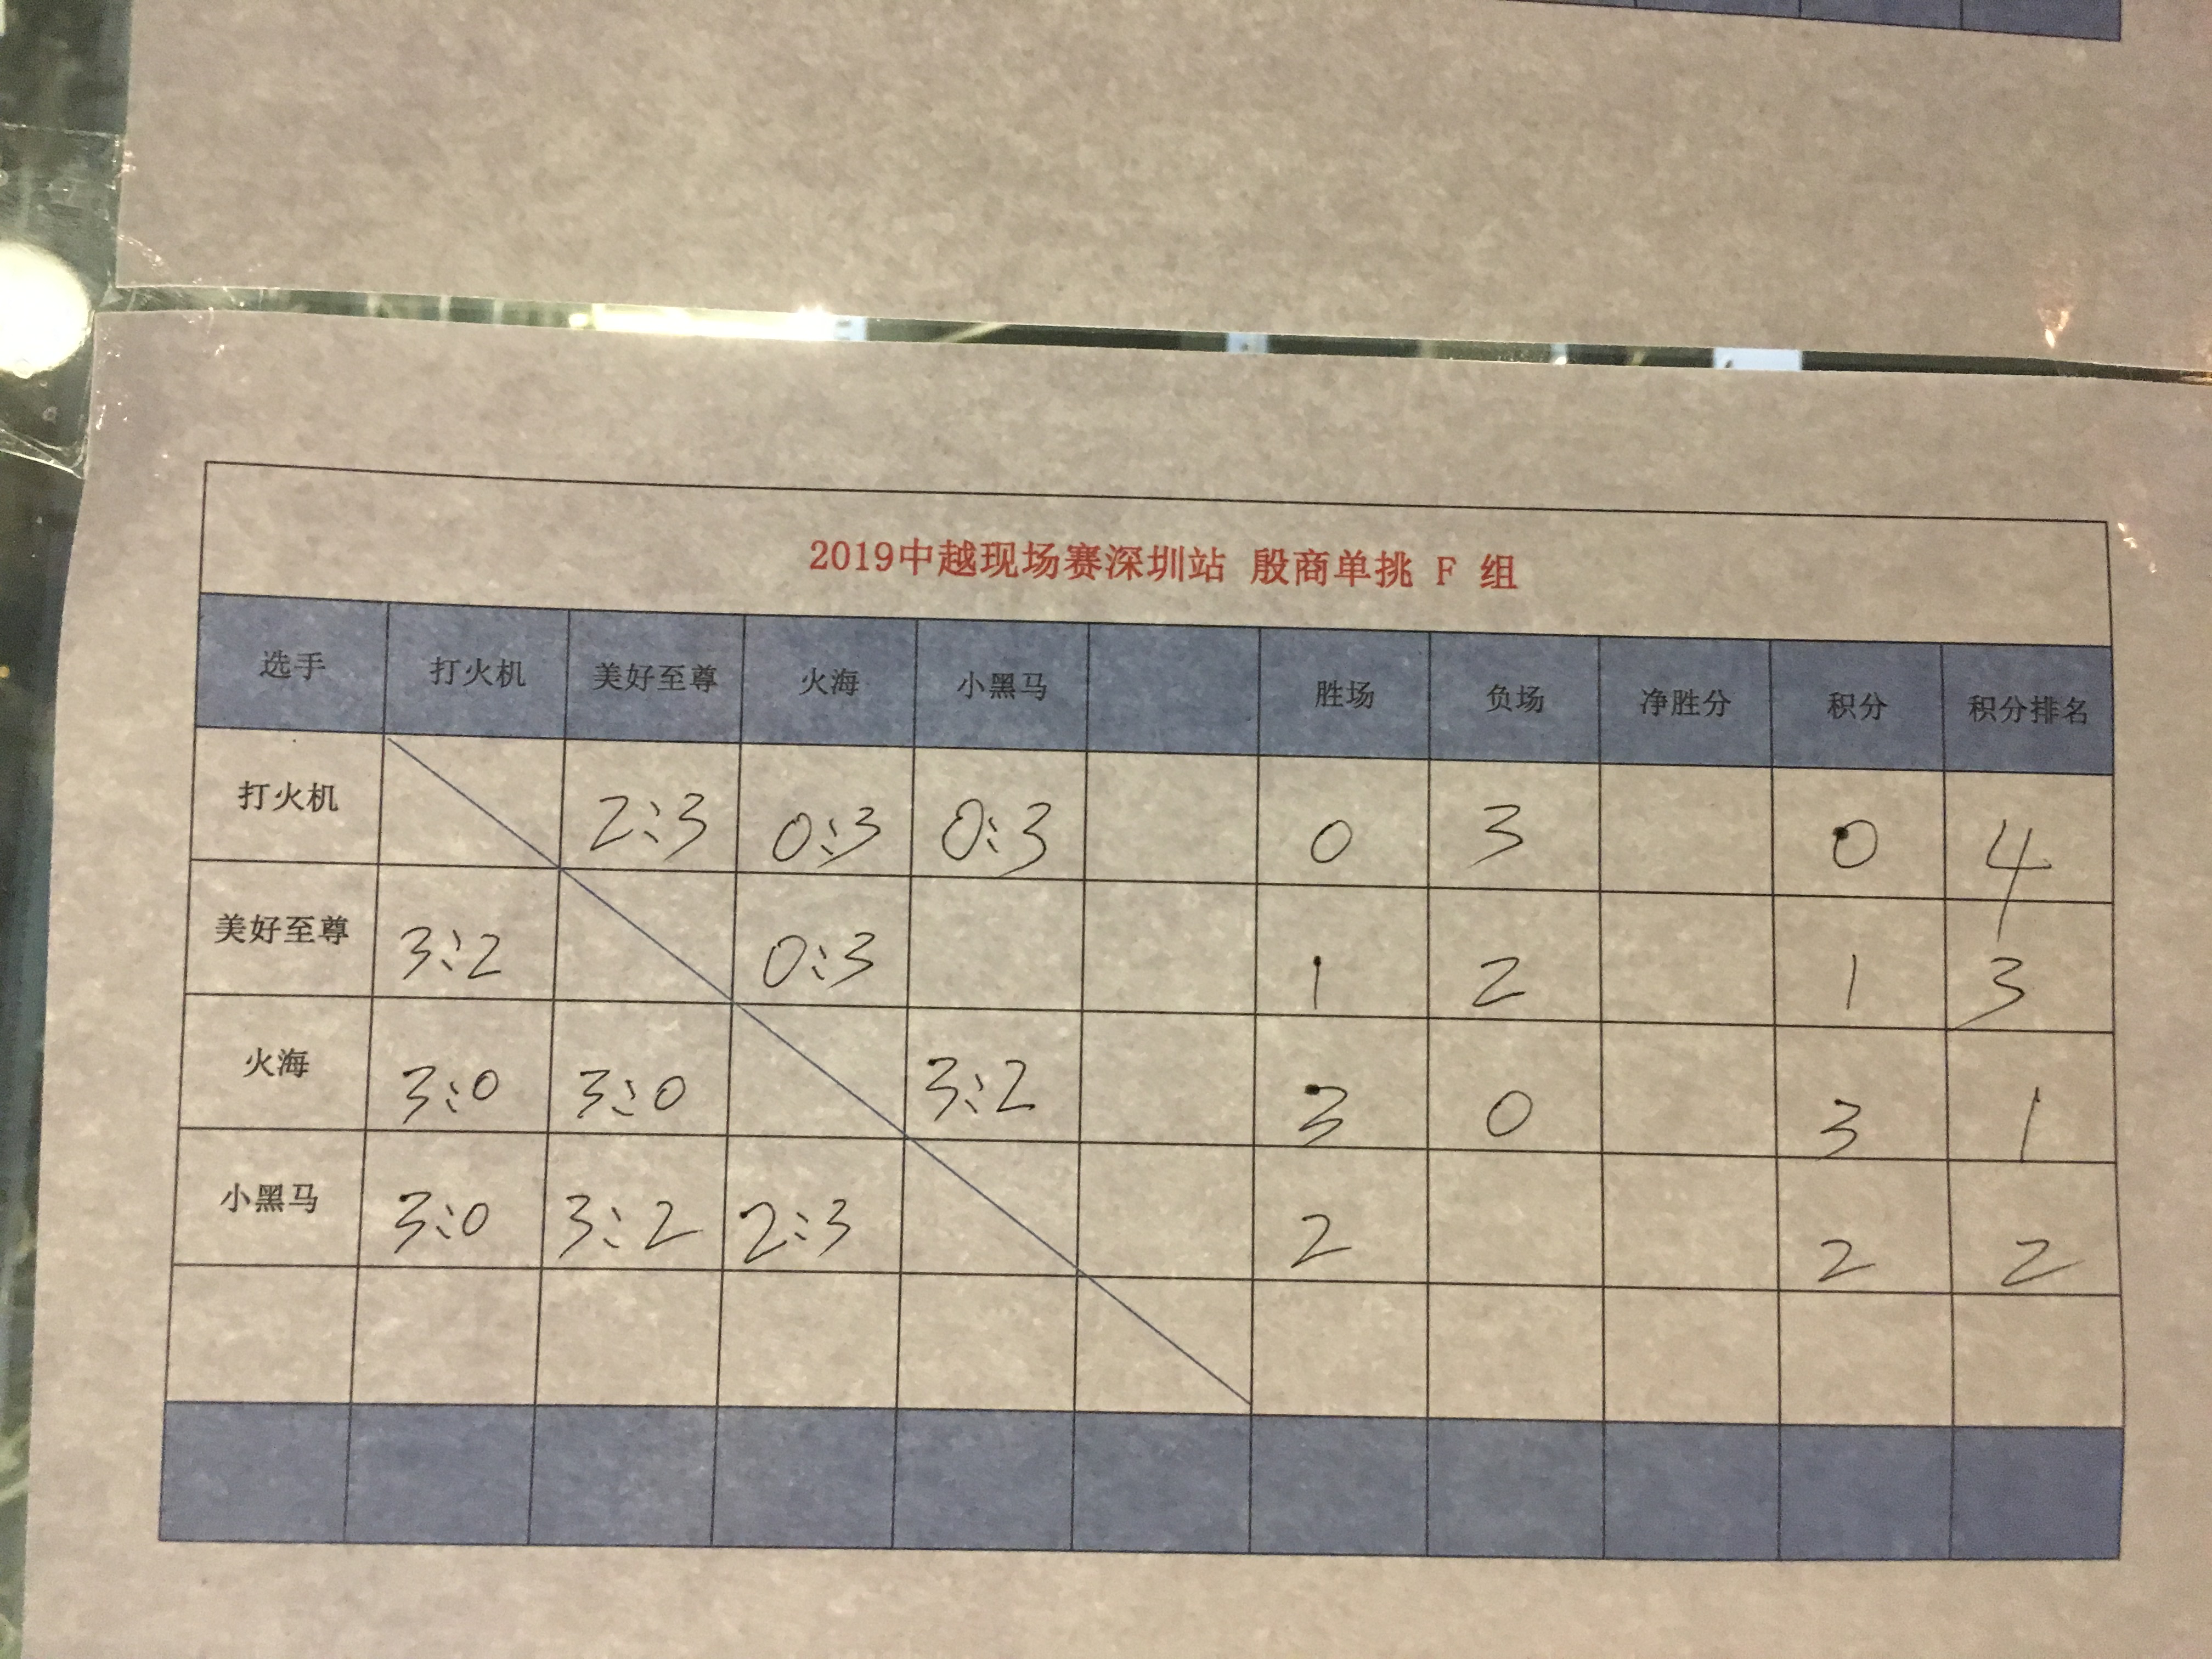 2019中越现场赛深圳站 殷商单挑 F 组
选手 打火机 美好至尊 火海 小黑马 胜场 负场 净胜分 积分 积分排名
打火机 2:3 0:3 0:3 0 3 0 4
美好至尊 3:2 0:3 1 2 1 3
火海 3:0 3:0 3:2 3 0 3 1
小黑马 3:0 3:2 2:3 2 2 2